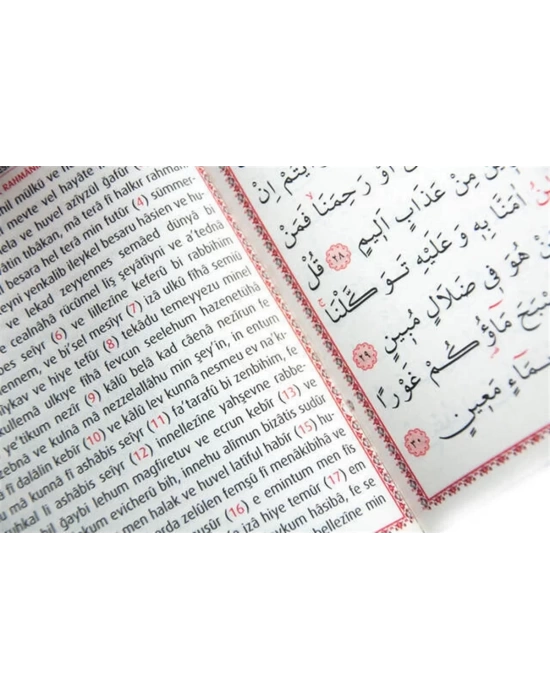 RAHMANİ
mil mülkü ve
meyte vel hayâte
ve huvel azîyzül gafûr
tıbâkan, mâ terâ fî halkır rahmani
besara hel terâ min futûr (4) sümmer-
yenkalib ileykel besaru hâsien ve hu-
ve lekad zeyyennes semâed dünyâ bi
cealnâhâ rücûmel liş şeyâtıyni ve a'tednâ
seîyr (6) ve lillezîne keferû bi rabbihim
ve bi'sel mesîyr (7) izâ ulkû fîhâ semiû
ve hiye tefûr (8) tekâdu temeyyezu minel
ulkıye fîhâ fevcun seelehum hazenetühâ
e'tikum nezîr (9) kâlû belâ kad câenâ nezîrun fe
zebnâ ve kulnâ mâ nezzelallâhu min şey'in, in entum
fî dalâlin kebîr (10) ve kâlû lev kunnâ nesmeu ev na'kı-
mâ kunnâ fî ashâbis seîyr (11) fa'terafû bi zenbihim, fe
uhkal li ashâbis seîyr (12) innellezîne yahşevne rabbe-
bil ğaybi lehum mağfiretuv ve ecrun kebîr (13) ve
kum evicherû bih, innehu alîmun bizâtis sudûr
men halak ve huvel latîful habîr (15) hu-
arda zelûlen femşû fî menâkibihâ ve
nuşûr (16) e emintum men fis
izâ hiye temûr (17) em
aykum hâsıbâ, fe se
bellezîne min
اَوْ رَحِمَنَا فَمَنْ
مِنْ عَذَابٍ اَلِيمٍ ٢٨ قُلْ
اٰمَنَّا بِهِ وَ عَلَيْهِ تَوَكَّلْنَا
هُوَ فِى ضَلَالٍ مُبِينٍ ٢٩
مَاؤُكُمْ غَوْرًا
مَعِينٍ ٣٠